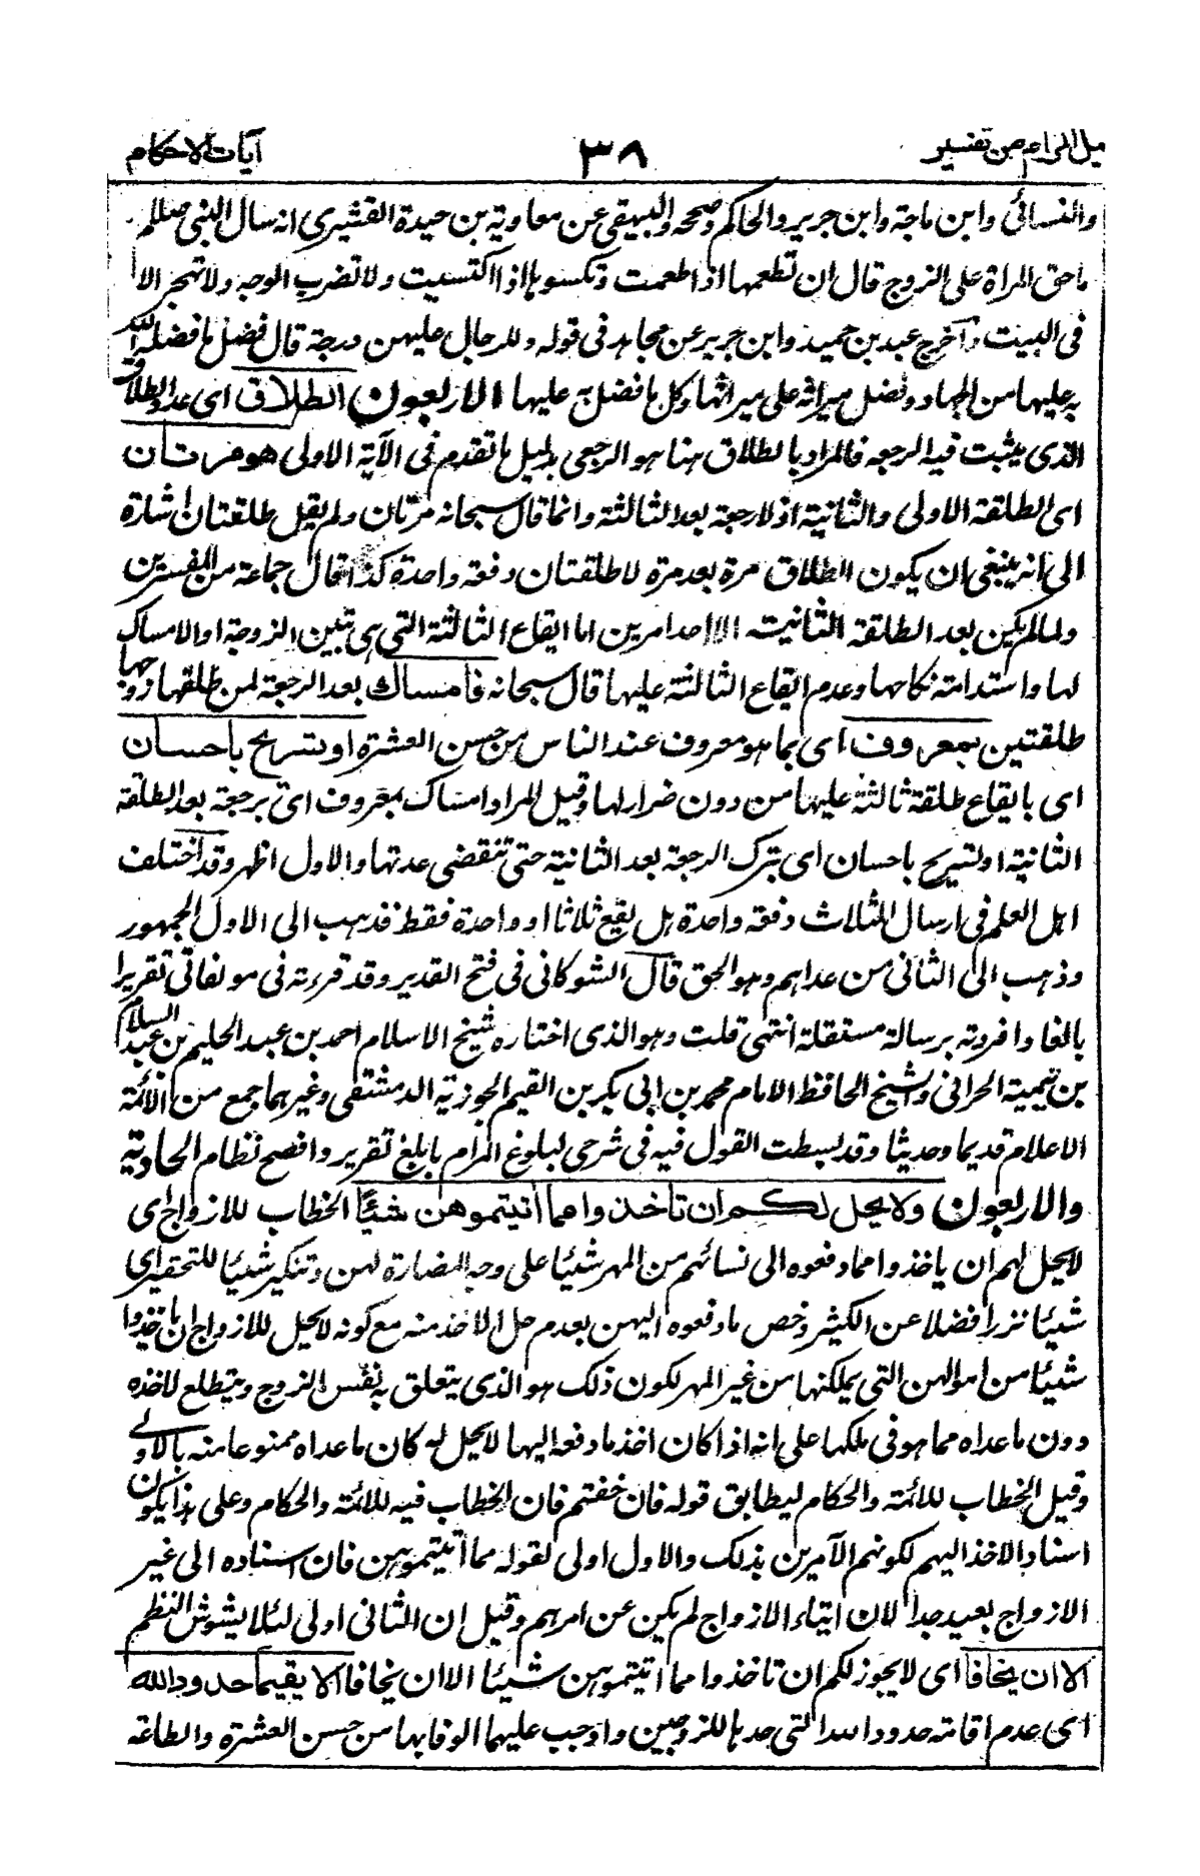 نيل المرام من تفسير ٣٨ آيات الاحكام
والنسائى وابن ماجة وابن جرير والحاكم وصححه والبيهقى عن معاوية بن حيدة القشيرى انه سال النبى صللم
ما حق المراة على الزوج قال ان تطعمها اذا طعمت وتكسوها اذا اكتسيت ولا تضرب الوجه ولا تهجر الا
فى البيت واخرج عبد بن حميد وابن جرير عن مجاهد فى قوله وللرجال عليهن درجة قال فضل ما فضله الله
به عليها من الجهاد وفضل ميراثه على ميراثها وكل ما فضل به عليها الاربعون الطلاق اى عدد الطلاق
الذى يثبت فيه الرجعه فالمراد بالطلاق هنا هو الرجعى بدليل ما تقدم فى الآية الاولى هو مرتان
اى الطلقة الاولى والثانية اذ لا رجعة بعد الثالثة وانما قال سبحانه مرتان ولم يقل طلقتان اشارة
الى انه ينبغى ان يكون الطلاق مرة بعد مرة لا طلقتان دفعة واحدة كذا قال جماعة من المفسرين
ولما لم يكن بعد الطلقة الثانية الا احد امرين اما ايقاع الثالثة التى بها تبين الزوجة او الامساك
لها واستدامة نكاحها وعدم ايقاع الثالثة عليها قال سبحانه فامساك بعد الرجعة لمن طلقها زوجها
طلقتين بمعروف اى بما هو معروف عند الناس من حسن العشرة او تسريح باحسان
اى بايقاع طلقة ثالثة عليها من دون ضرار لها وقيل المراد امساك بمعروف اى برجعة بعد الطلقة
الثانية او تسريح باحسان اى بترك الرجعة بعد الثانية حتى تنقضى عدتها والاول اظهر وقد اختلف
اهل العلم فى ارسال الثلاث دفعة واحدة هل يقع ثلاثا او واحدة فقط فذهب الى الاول الجمهور
وذهب الى الثانى من عداهم وهو الحق قال الشوكانى فى فتح القدير وقد قررته فى مولفاتى تقريرا
بالغا وافردته برسالة مستقلة انتهى قلت وهو الذى اختاره شيخ الاسلام احمد بن عبد الحليم بن عبد السلام
بن تيمية الحرانى والشيخ الحافظ الامام محمد بن ابى بكر بن القيم الجوزية الدمشقى وغيرهما جمع من الائمة
الاعلام قديما وحديثا وقد بسطت القول فيه فى شرحى لبلوغ المرام بابلغ تقرير وافصح نظام الحادية
والاربعون ولا يحل لكم ان تاخذوا مما آتيتموهن شيئا الخطاب للازواج اى
لا يحل لهم ان ياخذوا مما دفعوه الى نسائهم من المهر شيئا على وجه المضارة لهن وتنكير شيئا للتحقير اى
شيئا نزرا فضلا عن الكثير وخص ما دفعوه اليهن بعدم حل الاخذ منه مع كونه لا يحل للازواج ان ياخذوا
شيئا من اموالهن التى يملكنها من غير المهر لكون ذلك هو الذى يتعلق به نفس الزوج ويتطلع لاخذه
دون ما عداه مما هو فى ملكها على انه اذا كان اخذ ما دفعه اليها لا يحل له كان ما عداه ممنوعا منه بالاولى
وقيل الخطاب للائمة والحكام ليطابق قوله فان خفتم فان الخطاب فيه للائمة والحكام وعلى هذا يكون
اسناد الاخذ اليهم لكونهم الآمرين بذلك والاول اولى لقوله مما آتيتموهن فان اسناده الى غير
الازواج بعيد جدا لان ايتاء الازواج لم يكن عن امرهم وقيل ان الثانى اولى لئلا يشوش النظم
الا ان يخافا اى لا يجوز لكم ان تاخذوا مما آتيتموهن شيئا الا ان يخافا الا يقيما حدود الله
اى عدم اقامة حدود الله التى حدها للزوجين واوجب عليهما الوفا بها من حسن العشرة والطاعة